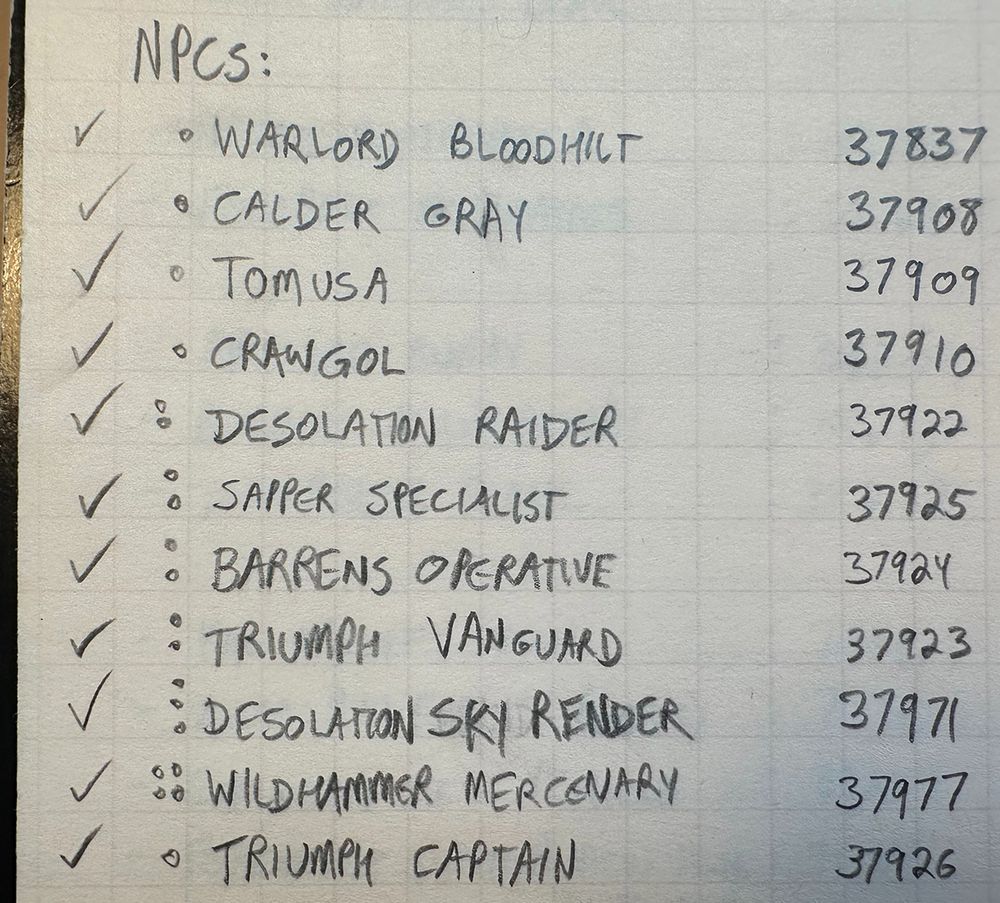 NPCs:
✓ • WARLORD BLOODHILT 37837
✓ • CALDER GRAY 37908
✓ • TOMUSA 37909
✓ • CRAWGOL 37910
✓ : DESOLATION RAIDER 37922
✓ : SAPPER SPECIALIST 37925
✓ : BARRENS OPERATIVE 37924
✓ : TRIUMPH VANGUARD 37923
✓ : DESOLATION SKY RENDER 37971
✓ :: WILDHAMMER MERCENARY 37977
✓ • TRIUMPH CAPTAIN 37926